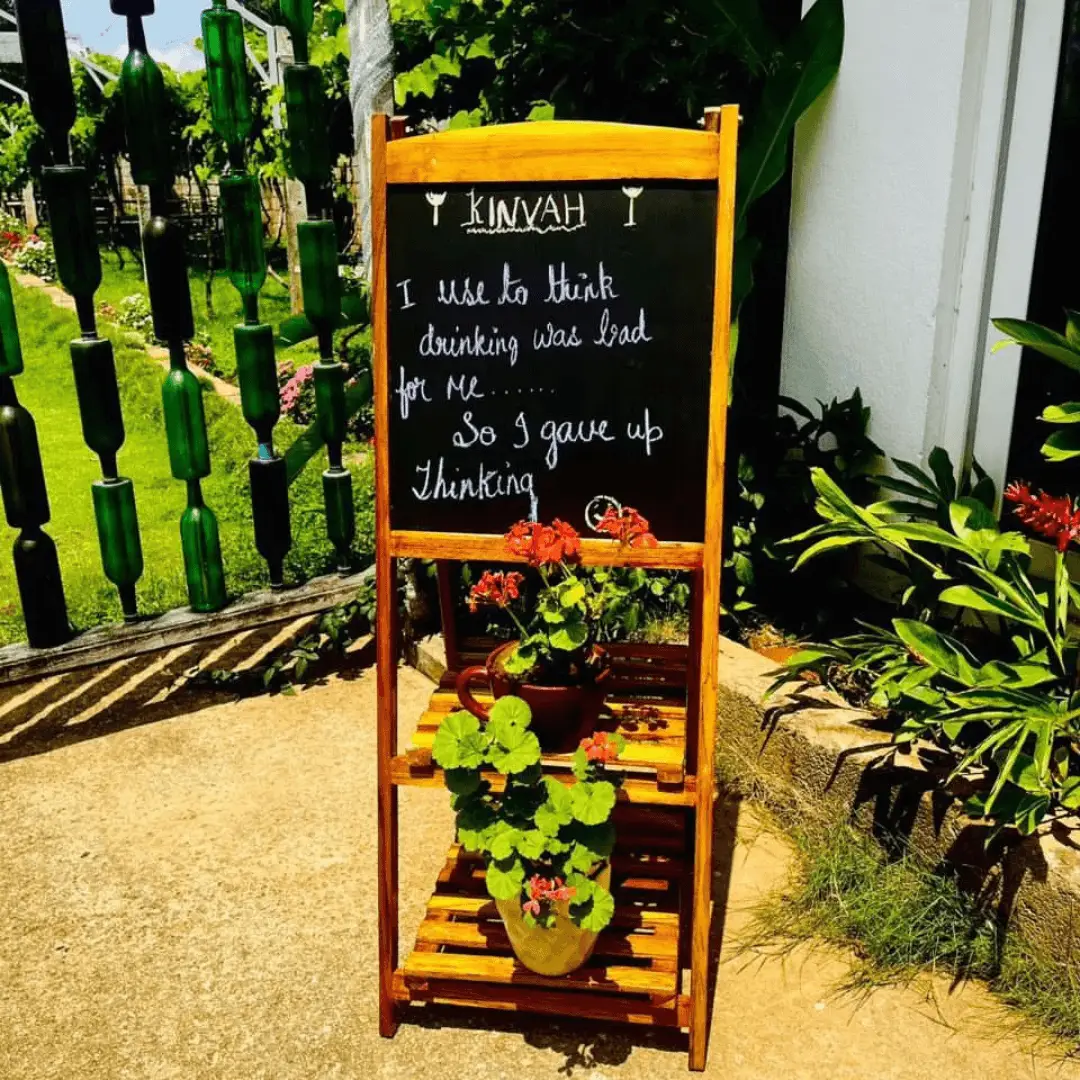 KINVAH
I use to think
drinking was bad
for me......
So I gave up
Thinking